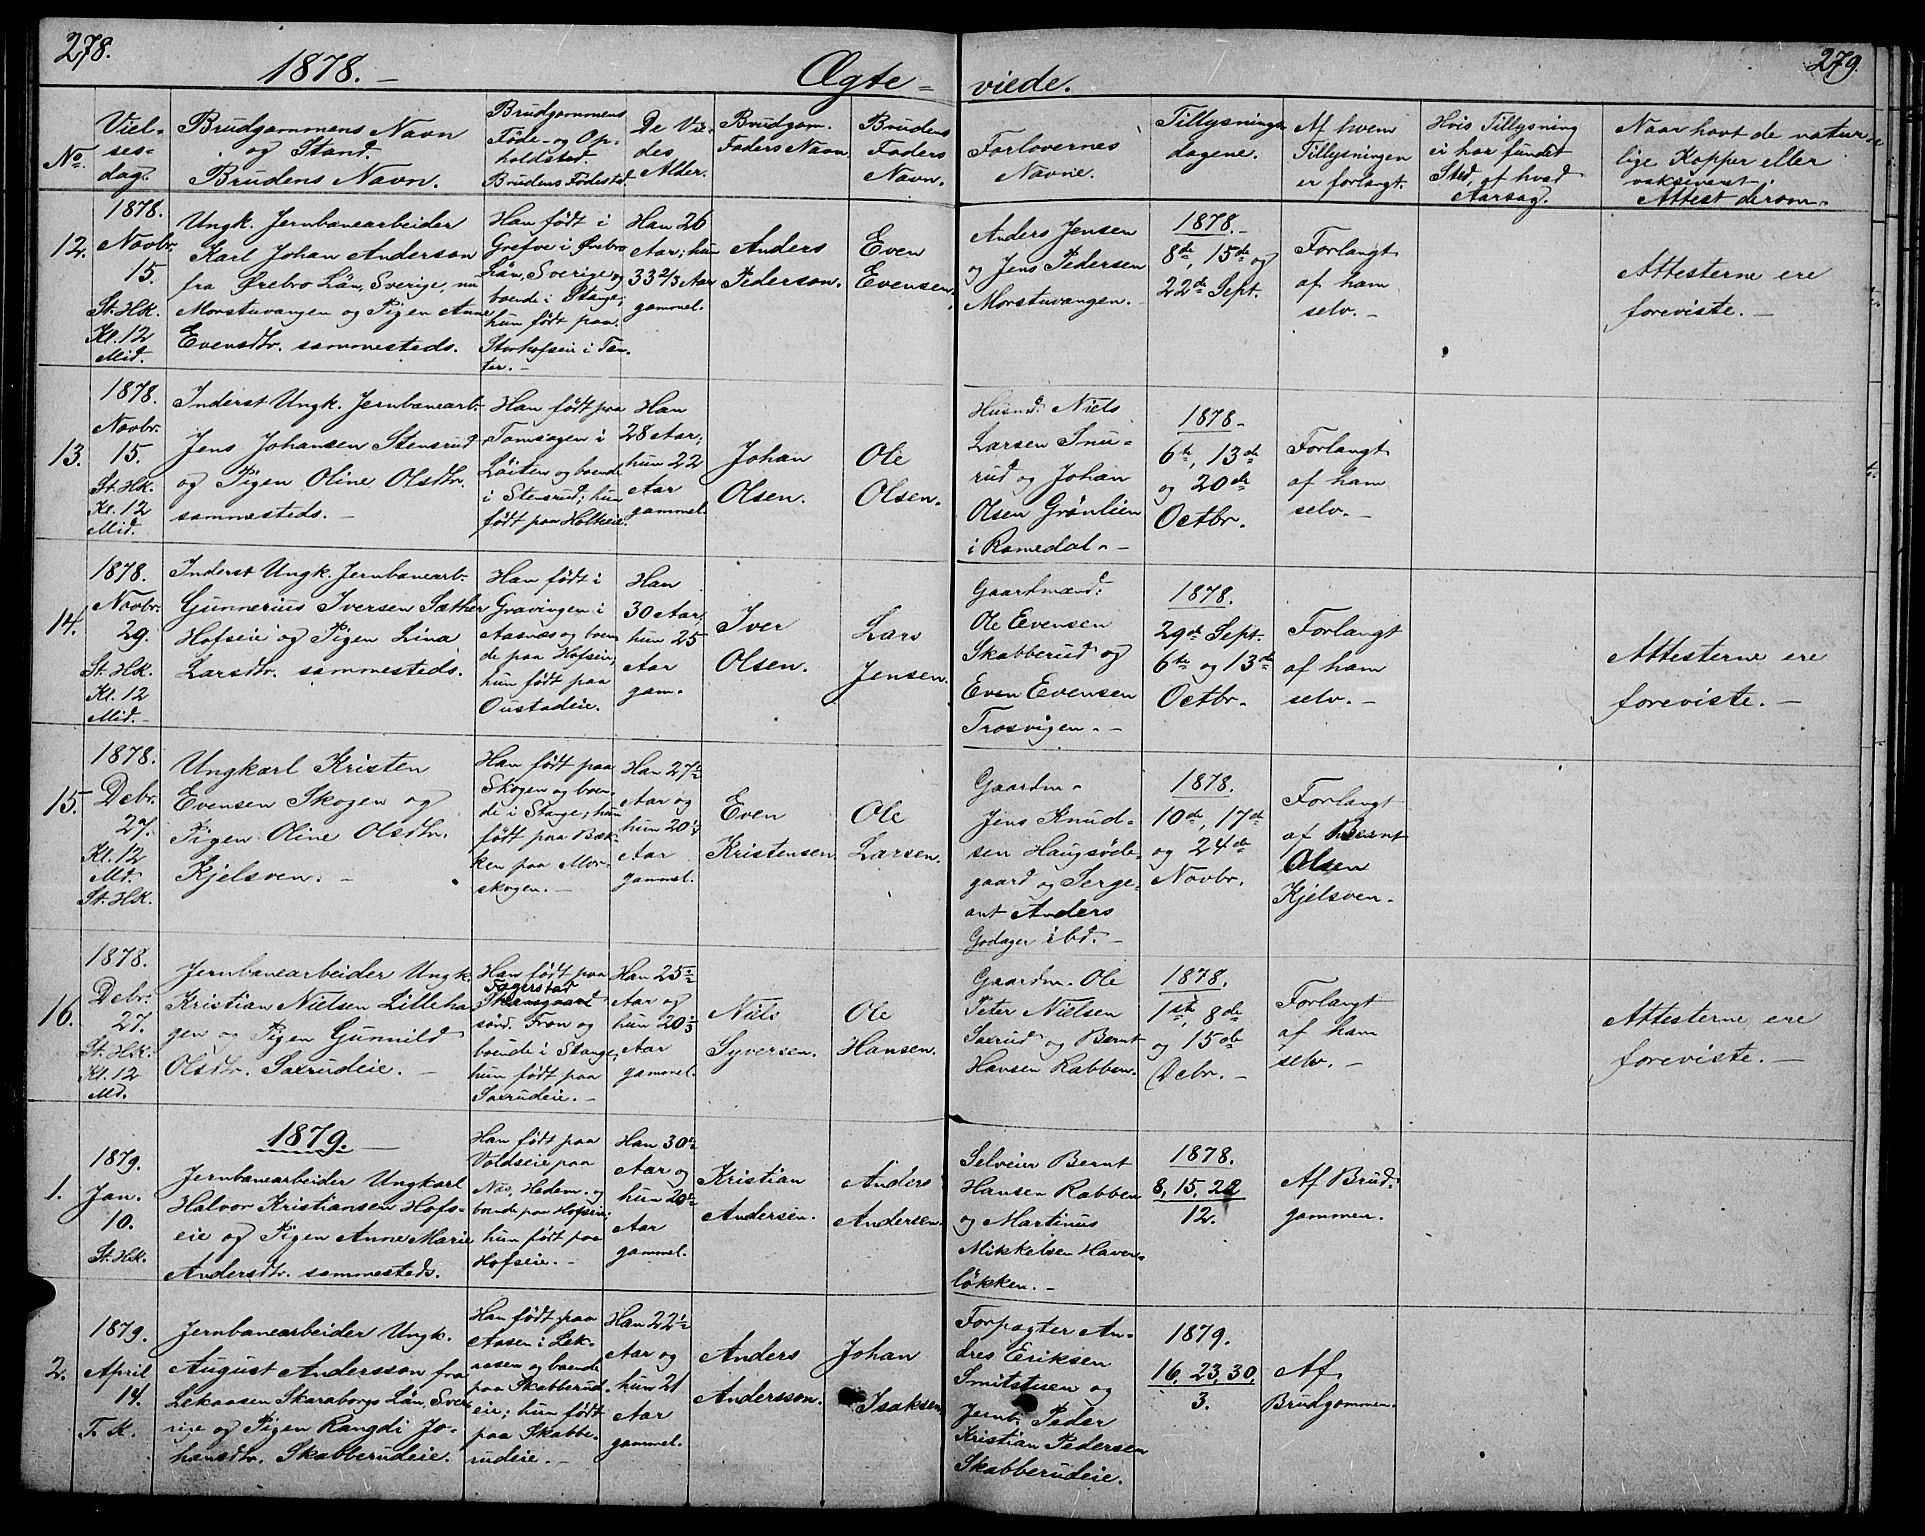 278.
1878. —
Ægte-
No.
Viel-
ses-
dag.
Brudgommens Navn
og Stand.
Brudens Navn.
Brudgommens
Føde- og Op-
holdsted.
Brudens Fødested.
De Vi-
des
Alder.
Brudgom.
Faders Navn.
Brudens
Faders
Navn.
12.
1878.
Novbr.
15.
St. Hk.
Kl. 12
Mid.
Ungk. Jernbanearbeider
Karl Johan Anderson
fra Ørebro Län, Sverige, nu
Morstuvangen og Pigen Anne
Evensdtr. sammesteds.
Han født i
Grefve i Ørebro
Län, Sverige og
boende i Stange;
hun født paa
Storhofseie i Tan-
ter. —
Han 26
Aar; hun
33 2/3 Aar
gammel.
Anders
Pederson.
Even
Evensen.
13.
1878.
Novbr.
15.
St. Hk.
Kl. 12
Mid.
Inderst Ungk. Jernbanearb.
Jens Johansen Stensrud
og Pigen Oline Olsdtr.
sammesteds. —
Han født paa
Tomsagen i
Löiten og boende
i Stensrud; hun
født paa Holteie.
Han
28 Aar;
hun 22
Aar
gammel.
Johan
Olsen.
Ole
Olsen.
14.
1878.
Novbr.
29.
St. Hk.
Kl. 12
Mid. -
Inderst Ungk. Jernbanearb.
Gunnerius Iversen Sæther
Hofseie og Pigen Lina
Larsdtr. sammesteds.
Han født i
Gravingen i
Aasnæs og boen-
de paa Hofseie,
hun født paa
Oustadeie.
Han
30 Aar,
hun 25
Aar
gam.
Iver
Olsen.
Lars
Jensen.
15.
1878.
Debr.
27.
Kl. 12
Md.
St. Hk.
Ungkarl Kristen
Evensen Skogen og
Pigen Oline Olsdtr.
Kjelsven. —
Han født paa
Skogen og boen-
de i Stange; hun
født paa Bæk-
ken paa Mor-
skogen. —
Han 27 1/2
Aar og
hun 20 1/4
Aar
gammel.
Even
Kristensen.
Ole
Larsen.
16.
1878.
Debr.
27.
St. Hk.
Kl. 12
Md.
Jernbanearbeider Ungk.
Kristian Nielsen Lilleha-
gen og Pigen Gunnild
Olsdtr. Saxrudeie. —
Han født paa
Fagerstad
sönd. Fron og
boende i Stange,
hun født paa
Saxrudeie. —
Han 25
Aar og
hun 20 1/3
Aar
gammel.
Niels
Syversen.
Ole
Hansen.
1879. —
1.
1879.
Jan.
10.
St. Hk.
Jernbanearbeider Ungkarl
Halvor Kristiansen Hofs-
eie og Pigen Anne Marie
Andersdtr. sammesteds.
Han født paa
Voldseie paa
Næs, Hedem. og
boende paa Hofseie;
hun født paa
Hofseie. —
Han 30 1/2
Aar og
hun 20 1/2
Aar
gammel.
Kristian
Andersen.
Anders
Andersen.
2.
1879.
April
14.
T. K.
Jernbanearbeider Ungk.
August Andersson fra
Lekaasen Skaraborgs Län, Sver-
rige og Pigen Rangdi Jo-
hansdtr. Skabberudeie.
Han født paa
Aasen i Lek-
aasen og boende
paa Skabberud-
eie; hun født
paa Skabbe-
rudeie. —
Han 22 1/2
Aar og
hun 21
Aar
gammel.
Anders
Andersson.
Johan
Isaksen.
279.
viede.
Forlovernes
Navne.
Tillysnings-
dagene.
Af hvem
Tillysningen
er forlangt.
Hvis Tillysning
ei har fundet
Sted, af hvad
Aarsag.
Naar havt de natur-
lige Kopper eller
vakcineret.
Attest derom.
Anders Jensen
og Jens Pedersen
Morstuvangen. —
1878. —
8de, 15de og
22de Sept.
Forlangt
af ham
selv. —
Attesterne ere
foreviste. —
Husmd. Niels
Larsen Snu-
rud og Johan
Olsen Grønlien
i Romedal. —
1878. —
6te, 13de
og 20de
Octbr.
Forlangt
af ham
selv. —
Gaardmænd:
Ole Evensen
Skabberud og
Even Evensen
Trosvigen. —
1878.
29de Sept.
6te og 13de
Octbr.
Forlangt
af ham
selv. —
Attesterne ere
foreviste. —
Gaardm. —
Jens Knud-
sen Haugsøde-
gaard og Serge-
ant Anders
Godager ibd. —
1878.
10de, 17de
og 24de
Novbr.
Forlangt
af Bernt
Olsen
Kjelsven.
Gaardm. Ole
Peter Nielsen
Saxrud og Bernt
Hansen Rabben.
1878.
1ste, 8de
og 15de
Debr. —
Forlangt
af ham
selv. —
Attesterne ere
foreviste. —
Selveier Bernt
Hansen Rabben
og Martinus
Mikkelsen Haven-
løkken. —
1878.
8, 15, 22
12.
Af Brud-
gommen.
Forpagter An-
dres Eriksen
Smitstuen og
Jernb. Peder
Kristian Pedersen
Skabberudeie.
1879.
16, 23, 30,
3.
Af
Brudgommen.